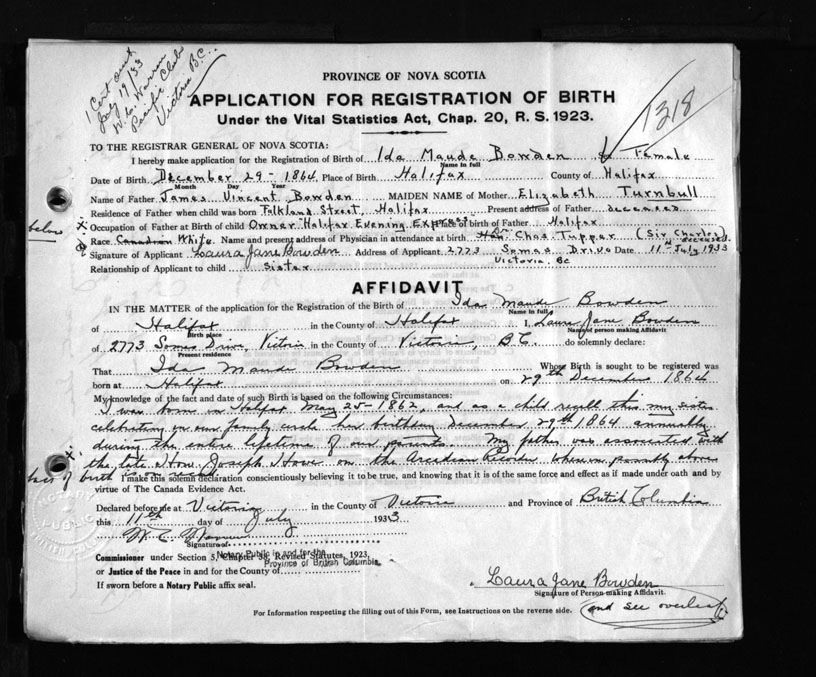 1 Cert sent
July 19/33
W. C. Warren
Pacific Club
Victoria B.C.
1318
PROVINCE OF NOVA SCOTIA
APPLICATION FOR REGISTRATION OF BIRTH
Under the Vital Statistics Act, Chap. 20, R. S. 1923.
TO THE REGISTRAR GENERAL OF NOVA SCOTIA:
I hereby make application for the Registration of Birth of Ida Maude Bowden Female
Name in full
Date of Birth December 29 - 1864 Place of Birth Halifax County of Halifax
Month Day Year
Name of Father James Vincent Bowden MAIDEN NAME of Mother Elizabeth Turnbull
Residence of Father when child was born Falkland Street, Halifax Present address of Father deceased
below x Occupation of Father at Birth of child Owner Halifax Evening Express Place of birth of Father Halifax
Race Canadian White Name and present address of Physician in attendance at birth Hon. Chas. Tupper (Sir Charles) deceased
Signature of Applicant Laura Jane Bowden Address of Applicant 2773 Somas Drive Date 11th July 1933
Victoria, BC
Relationship of Applicant to child Sister
AFFIDAVIT
IN THE MATTER of the application for the Registration of the Birth of Ida Maude Bowden
Name in full
of Halifax in the County of Halifax I, Laura Jane Bowden
Birth place Name of person making Affidavit
of 2773 Somas Drive, Victoria in the County of Victoria, B.C. do solemnly declare:
Present residence
That Ida Maude Bowden Whose Birth is sought to be registered was
born at Halifax on 29th December 1864
My knowledge of the fact and date of such Birth is based on the following Circumstances:
I was born in Halifax May 25 - 1862, and as a child recall this my sister
celebrating in our family circle her birthday December 29th 1864 annually
during the entire lifetime of our parents. My father was associated with
x the late Hon. Joseph Howe on the Arcadian Recorder wherein possibly above
birth is I make this solemn declaration conscientiously believing it to be true, and knowing that it is of the same force and effect as if made under oath and by
virtue of The Canada Evidence Act.
Declared before me at Victoria in the County of Victoria and Province of British Columbia
this 11th day of July 1933
W. C. Warren
Signature of
Notary Public in and for the
Province of British Columbia
Commissioner under Section 5, Chapter 38, Revised Statutes, 1923,
or Justice of the Peace in and for the County of
If sworn before a Notary Public affix seal.
Laura Jane Bowden
Signature of Person making Affidavit.
For Information respecting the filling out of this Form, see Instructions on the reverse side.
and see overleaf
NOTARY
PUBLIC